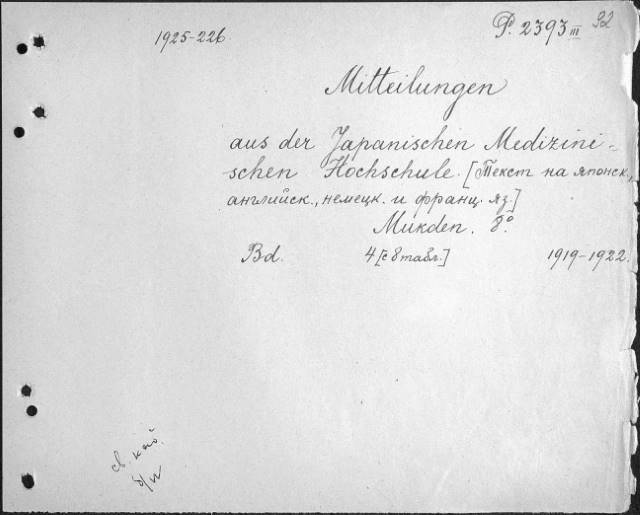 1925-226
P. 2393 III 32
Mitteilungen
aus der Japanischen Medizini-
schen Hochschule. [Текст на японск.,
английск., немецк. и франц. яз.]
Mukden. 8°.
Bd. 4 [с 8 табл.] 1919-1922.
св. каб.
б/и